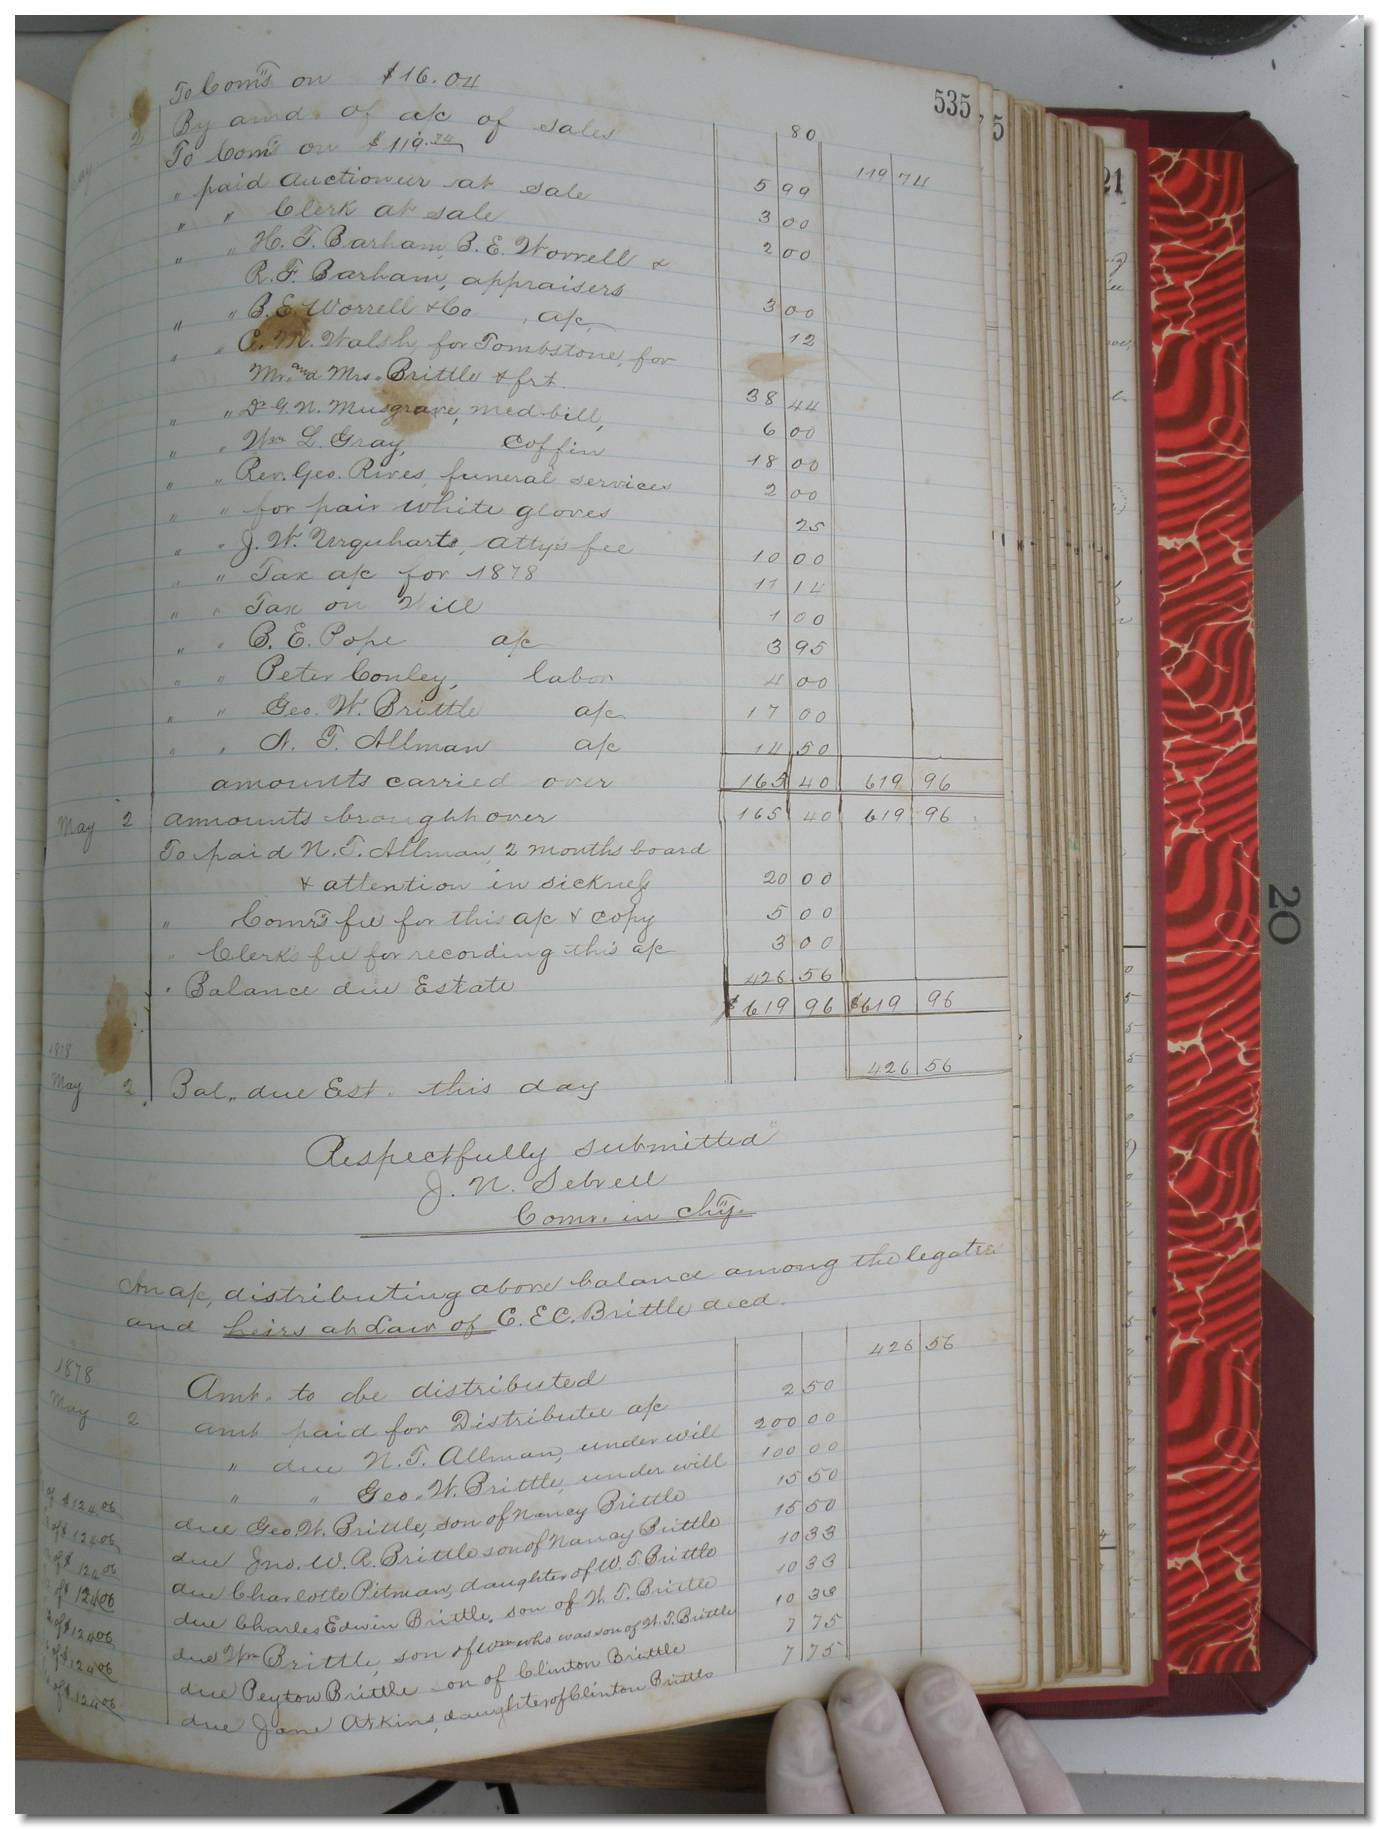 535
5
21
To Com's on $16.04 80
By amd. of a/c of sales 119 74
2 To Com's on $119.74 5 99
" paid Auctioneer at sale 3 00
" " Clerk at sale 2 00
" " H. T. Barham, B. E. Worrell &
R. F. Barham, appraisers 3 00
" " B. E. Worrell & Co a/c 12
" " C. M. Walsh, for Tombstone, for
Mr. and Mrs. Brittle & frt. 38 44
" " Dr G. N. Musgrave, med-bill, 6 00
" " Wm L. Gray, coffin 18 00
" " Rev. Geo. Rives, funeral services 2 00
" " for pair white gloves 25
" " J. W. Urquharts, atty's fee 10 00
" " Tax a/c for 1878 11 14
" " Tax on Will 1 00
" " B. E. Pope a/c 3 95
" " Peter Conley, labor 4 00
" " Geo. W. Brittle a/c 17 00
" " N. T. Allman a/c 14 50
amounts carried over 165 40 619 96
May 2 amounts brought over 165 40 619 96
To paid N. T. Allman, 2 months board
& attention in sickness 20 00
" Comr's fee for this a/c & copy 5 00
" Clerk's fee for recording this a/c 3 00
" Balance due Estate 426 56
$619 96 $619 96
1878
May 2 Bal. due Est. this day 426 56
Respectfully submitted
J. N. Sebrell
Comr. in Chy.
An a/c, distributing above balance among the legatees
and heirs at Law of C. E. C. Brittle decd.
1878
May 2 Amt. to be distributed 426 56
amt paid for Distributee a/c 2 50
" due N. T. Allman, under will 200 00
" " Geo. W. Brittle, under will 100 00
of $124.06 due Geo. W. Brittle, son of Nancy Brittle 15 50
of $124.06 due Jno. W. R. Brittle son of Nancy Brittle 15 50
of $124.06 due Charlotte Pitman, daughter of W. T. Brittle 10 33
of $124.06 due Charles Edwin Brittle, son of W. T. Brittle 10 33
of $124.06 due Wm Brittle, son of Wm who was son of W. T. Brittle 10 33
of $124.06 due Peyton Brittle son of Clinton Brittle 7 75
of $124.06 due Jane Atkins, daughter of Clinton Brittle 7 75
20